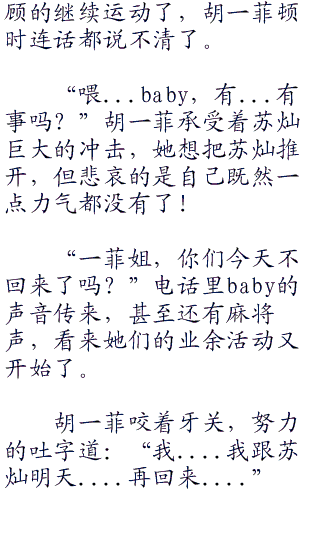 顾的继续运动了，胡一菲顿
时连话都说不清了。
“喂...baby，有...有
事吗？”胡一菲承受着苏灿
巨大的冲击，她想把苏灿推
开，但悲哀的是自己既然一
点力气都没有了！
“一菲姐，你们今天不
回来了吗？”电话里baby的
声音传来，甚至还有麻将
声，看来她们的业余活动又
开始了。
胡一菲咬着牙关，努力
的吐字道：“我....我跟苏
灿明天....再回来....”